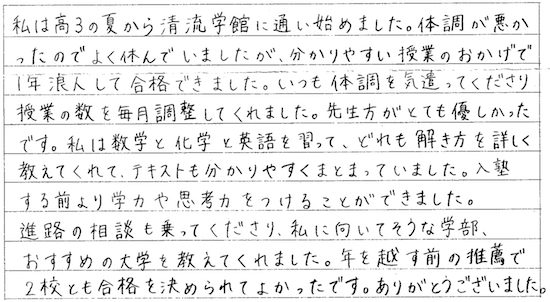 私は高3の夏から清流学館に通い始めました。体調が悪か
ったのでよく休んでいましたが、分かりやすい授業のおかげで
1年浪人して合格できました。いつも体調を気遣ってくださり
授業の数を毎月調整してくれました。先生方がとても優しかった
です。私は数学と化学と英語を習って、どれも解き方を詳しく
教えてくれて、テキストも分かりやすくまとまっていました。入塾
する前より学力や思考力をつけることができました。
進路の相談も乗ってくださり、私に向いてそうな学部、
おすすめの大学を教えてくれました。年を越す前の推薦で
2校とも合格を決められてよかったです。ありがとうございました。